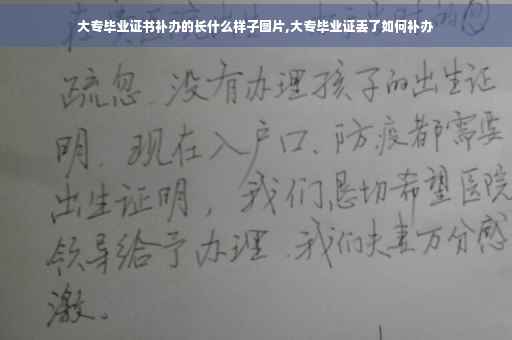 大专毕业证书补办的长什么样子图片,大专毕业证丢了如何补办
疏忽、没有办理孩子的出生证
明、现在入户口、防疫都需要
出生证明，我们恳切希望医院
领导给予办理、我们夫妻万分感
激。